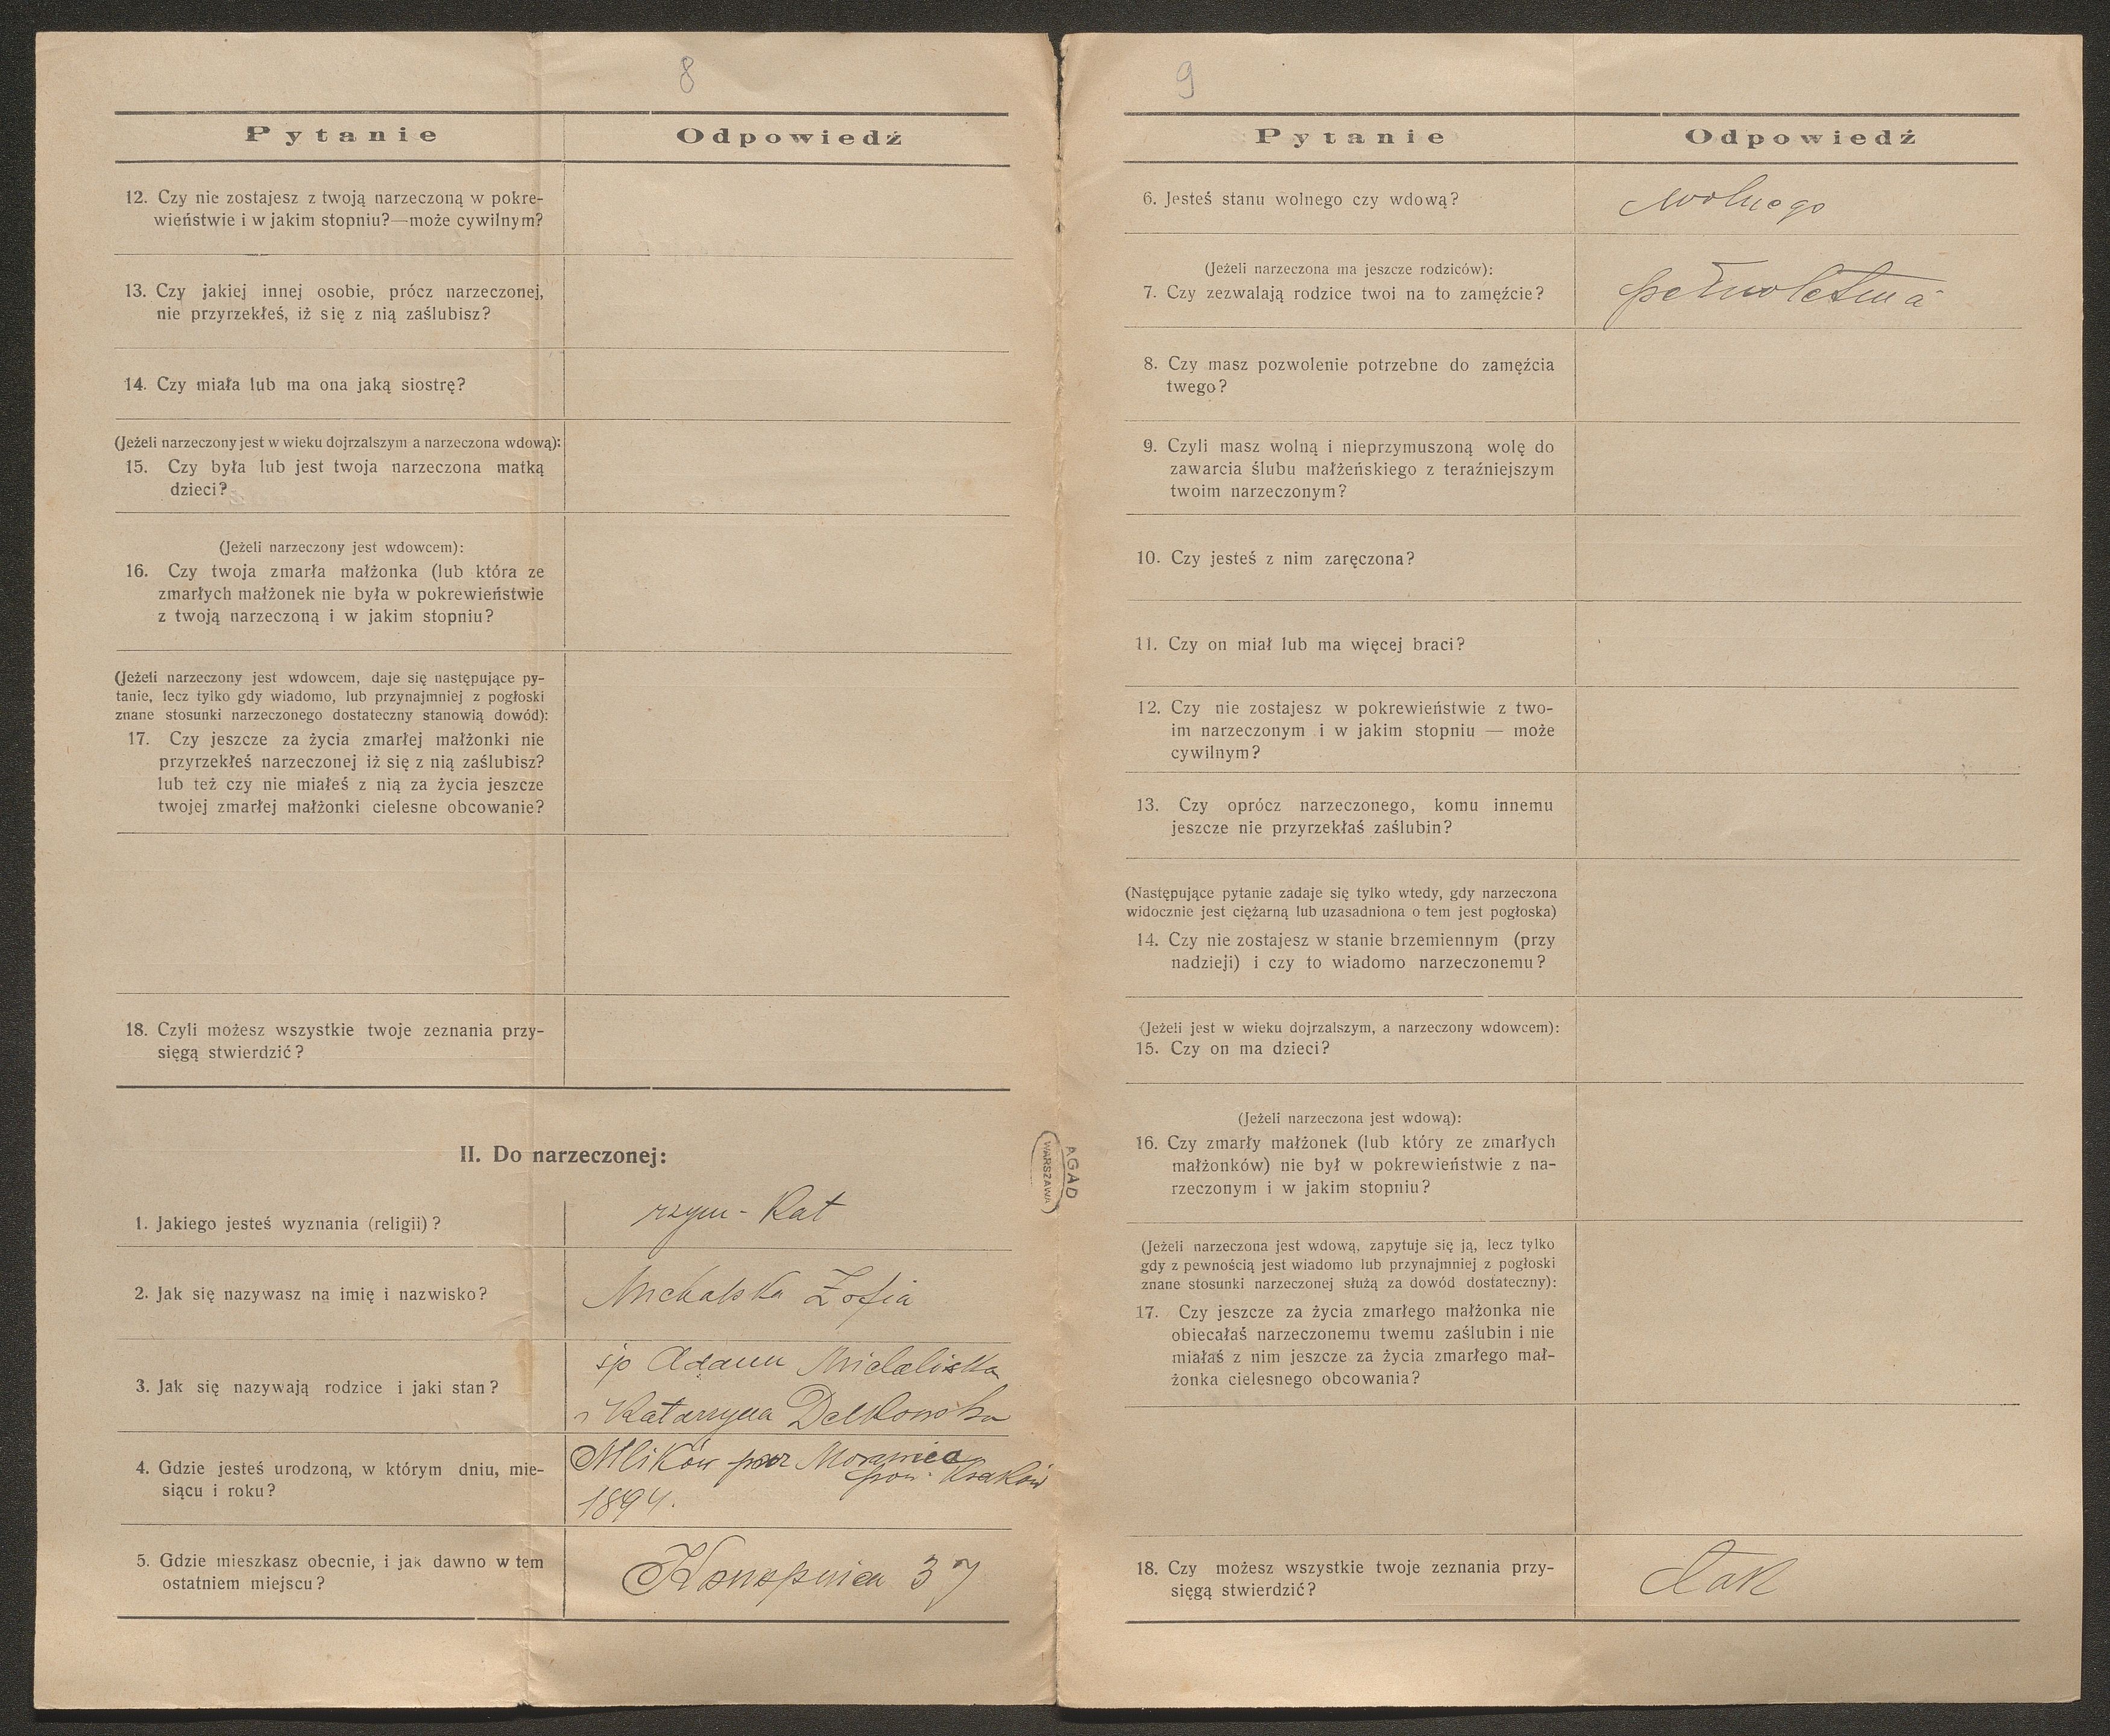 8
Pytanie
Odpowiedź
12. Czy nie zostajesz z twoją narzeczoną w pokre-
wieństwie i w jakim stopniu?—może cywilnym?
13. Czy jakiej innej osobie, prócz narzeczonej,
nie przyrzekłeś, iż się z nią zaślubisz?
14. Czy miała lub ma ona jaką siostrę?
(Jeżeli narzeczony jest w wieku dojrzalszym a narzeczona wdową):
15. Czy była lub jest twoja narzeczona matką
dzieci?
(Jeżeli narzeczony jest wdowcem):
16. Czy twoja zmarła małżonka (lub która ze
zmarłych małżonek nie była w pokrewieństwie
z twoją narzeczoną i w jakim stopniu?
(Jeżeli narzeczony jest wdowcem, daje się następujące py-
tanie, lecz tylko gdy wiadomo, lub przynajmniej z pogłoski
znane stosunki narzeczonego dostateczny stanowią dowód):
17. Czy jeszcze za życia zmarłej małżonki nie
przyrzekłeś narzeczonej iż się z nią zaślubisz?
lub też czy nie miałeś z nią za życia jeszcze
twojej zmarłej małżonki cielesne obcowanie?
18. Czyli możesz wszystkie twoje zeznania przy-
sięgą stwierdzić?
II. Do narzeczonej:
1. Jakiego jesteś wyznania (religii)?
rzym-Kat
2. Jak się nazywasz na imię i nazwisko?
Michalska Zofia
3. Jak się nazywają rodzice i jaki stan?
śp Adam
i Katarzyna
4. Gdzie jesteś urodzoną, w którym dniu, mie-
siącu i roku?
par
pow. Kraków
1894.
5. Gdzie mieszkasz obecnie, i jak dawno w tem
ostatniem miejscu?
Konopnica 37
AGAD
WARSZAWA
9
Pytanie
Odpowiedź
6. Jesteś stanu wolnego czy wdową?
wolnego
(Jeżeli narzeczona ma jeszcze rodziców):
7. Czy zezwalają rodzice twoi na to zamężcie?
pełnoletnia
8. Czy masz pozwolenie potrzebne do zamężcia
twego?
9. Czyli masz wolną i nieprzymuszoną wolę do
zawarcia ślubu małżeńskiego z teraźniejszym
twoim narzeczonym?
10. Czy jesteś z nim zaręczona?
11. Czy on miał lub ma więcej braci?
12. Czy nie zostajesz w pokrewieństwie z two-
im narzeczonym i w jakim stopniu — może
cywilnym?
13. Czy oprócz narzeczonego, komu innemu
jeszcze nie przyrzekłaś zaślubin?
(Następujące pytanie zadaje się tylko wtedy, gdy narzeczona
widocznie jest ciężarną lub uzasadniona o tem jest pogłoska)
14. Czy nie zostajesz w stanie brzemiennym (przy
nadzieji) i czy to wiadomo narzeczonemu?
(Jeżeli jest w wieku dojrzalszym, a narzeczony wdowcem):
15. Czy on ma dzieci?
(Jeżeli narzeczona jest wdową):
16. Czy zmarły małżonek (lub który ze zmarłych
małżonków) nie był w pokrewieństwie z na-
rzeczonym i w jakim stopniu?
(Jeżeli narzeczona jest wdową, zapytuje się ją, lecz tylko
gdy z pewnością jest wiadomo lub przynajmniej z pogłoski
znane stosunki narzeczonej służą za dowód dostateczny):
17. Czy jeszcze za życia zmarłego małżonka nie
obiecałaś narzeczonemu twemu zaślubin i nie
miałaś z nim jeszcze za życia zmarłego mał-
żonka cielesnego obcowania?
18. Czy możesz wszystkie twoje zeznania przy-
sięgą stwierdzić?
tak